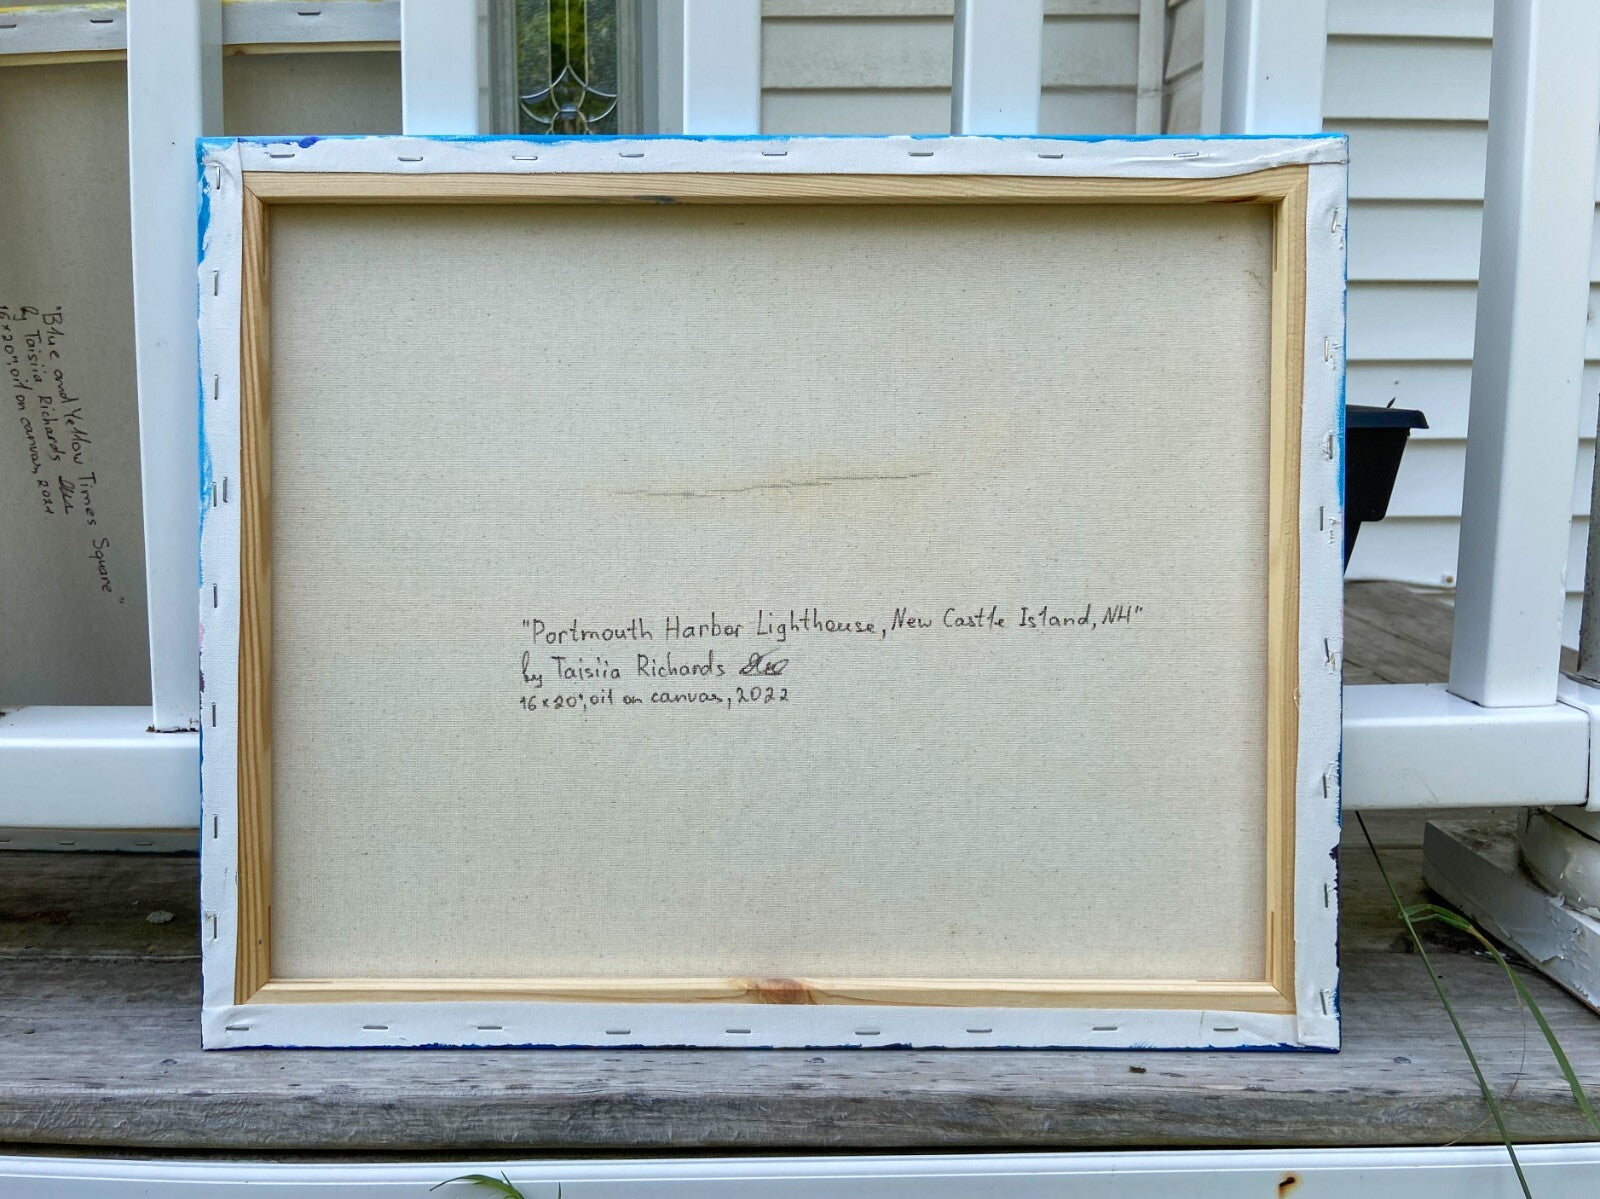 "Portmouth Harbor Lighthouse, New Castle Island, NH"
by Taisiia Richards
16x20", oil on canvas, 2022
"Blue and Yellow Times Square"
by Taisiia Richards
16x20", oil on canvas, 2021